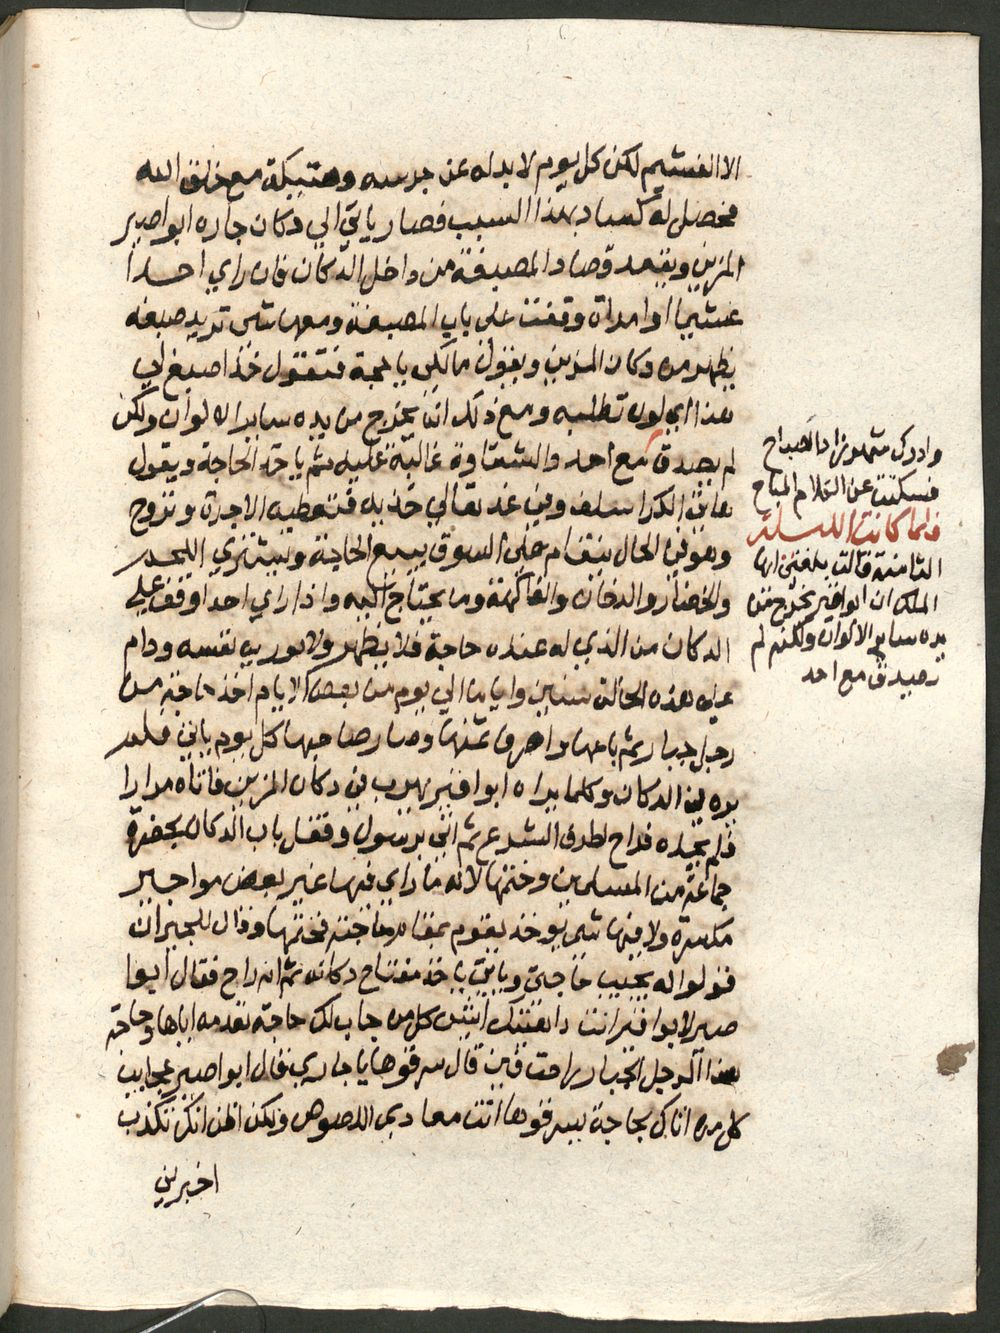 الا الغشيم لكن كل يوم لا بد له عن جرسه وهتيكة مع خلق الله
فحصل له كساد بهذا السبب فصار ياتي الي دكان جاره ابو اصير
المزين ويقعد قصاد المصبغة من داخل الدكان فان راي احدا
غشيما او امراة وقفت علي باب المصبغة ومعها شي تريد صبغه
يظهر من دكان المزين ويقول مالكي يا هجبة فتقول خذ اصبغ لي
هذا اي لون تطلبه ومع ذلك انه يخرج من يده ساير الالوان ولكن
لم يصدق مع احد والشقاوة غالبة عليه ثم ياخذ الحاجة ويقول
هاتي الكرا سلف وفي غد تعالي خذيه فتعطيه الاجرة وتروح
وهو في الحال يقام علي السوق يبيع الحاجة ويشتري اللحم
والخضار والدخان والفاكهة وما يحتاج اليه واذا راي احدا وقف علي
الدكان من الذي له عنده حاجة فلا يظهر ولا يوريه نفسه ودام
علي هذه الحالة سنين واياما الي يوم من بعض الايام اخذ حاجة من
رجل جبار ثم باعها واصرف ثمنها وصار صاحبها كل يوم ياتي فلم
يره في الدكان وكلما يراه ابو اقير يهرب في دكان المزين فاتاه مرارا
فلم يجده فراح لطرف الشرع ثم اتي برسول وقفل باب الدكان بحضرة
جماعة من المسلمين وختمها لانه ما راي فيها غير بعض مواجير
مكسرة ولا فيها شي يوخذ يقوم بمقام حاجته فختمها وقال للجيران
قولوا له يجيب حاجتي وياتي ياخذ مفتاح دكانه ثم انه راح فقال ابوا
صير لابو اقير انت داهيتك ايش كل من جاب لك حاجة تعدمه اياها وحاجة
هذا الرجل الجبار راحت فين قال سرقوها يا جاري فقال ابو اصير عجايب
كل من اتاك بحاجة يسرقوها انت معادي اللصوص ولكن اظن انك تكذب
اخبرني
وادرك شهرزاد الصباح
فسكتت عن الكلام المباح
فلما كانت الليلة
الثامنة قالت بلغني ايها
الملك ان ابو اقير يخرج من
يده ساير الالوان ولكنه لم
يصدق مع احد